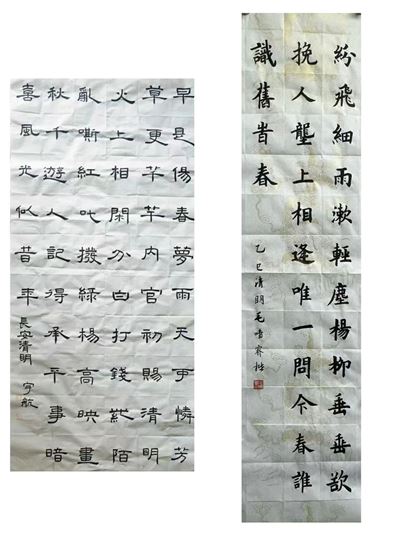 早是傷春夢雨天爭憐芳
草更芊芊內官初賜清明
火上相閑分白打錢紫陌
亂嘶紅叱撥綠楊高映畫
秋千遊人記得承平事暗
喜風光似昔年
長安清明 宇航
紛飛細雨漱輕塵楊柳垂垂欲
挽人壟上相逢唯一問今春誰
識舊旹春
乙巳清明毛